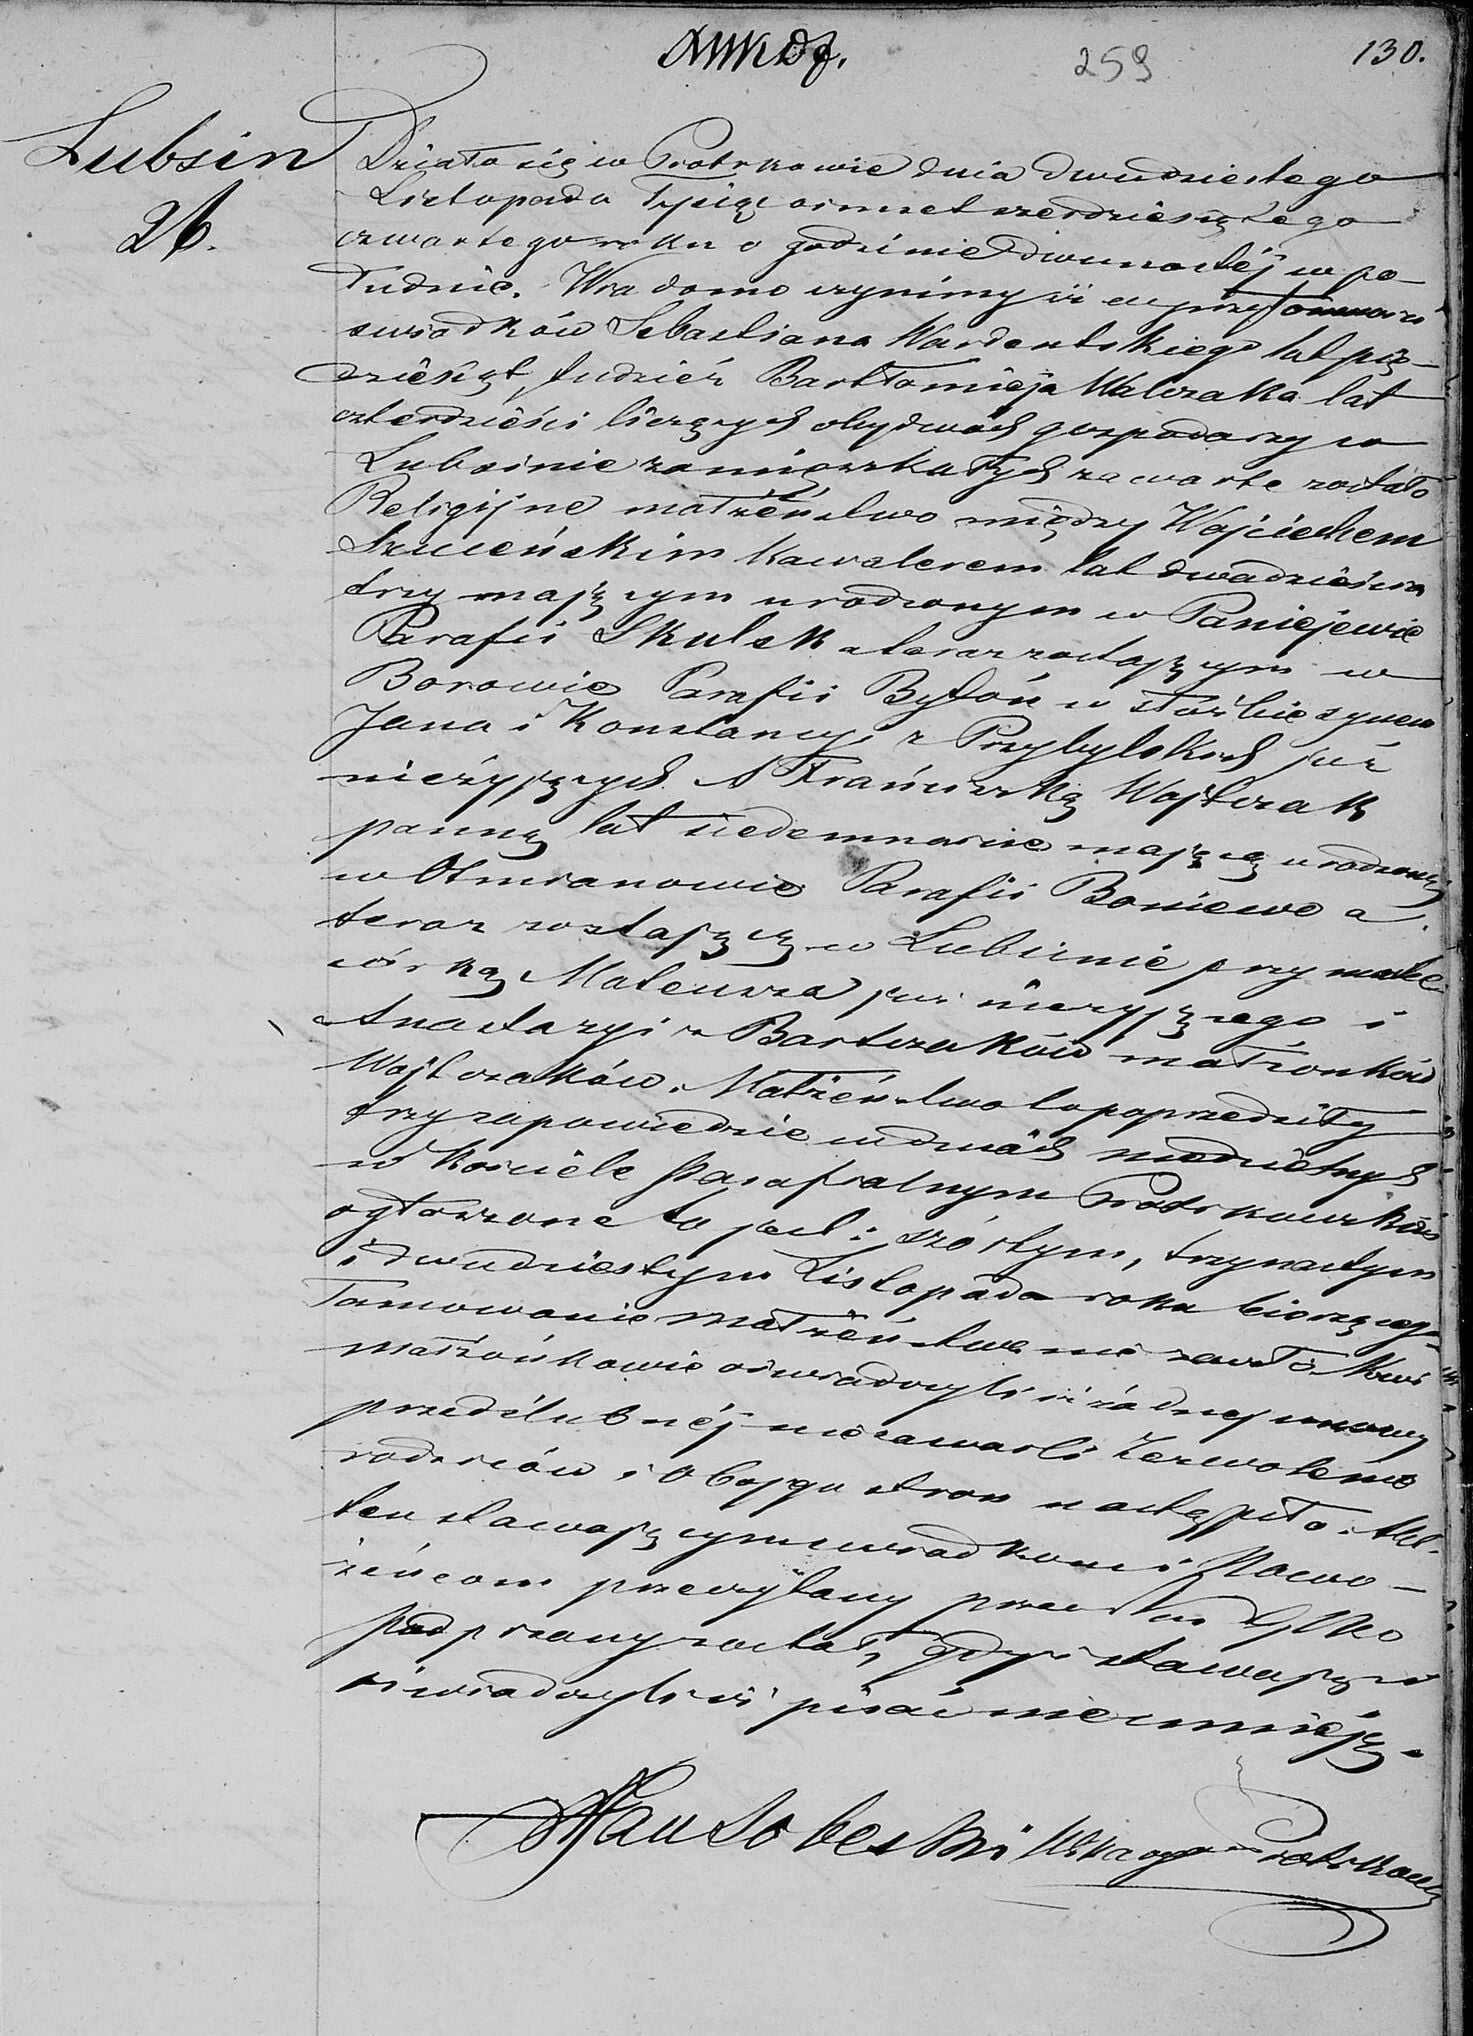 259
130.
Lubsin
26.
Działo się w Piotrkowie dnia dwudziestego
Listopada Tysiąc osmset czerdziestego
czwartego roku o godzinie dwunastéj w po
łudnie. Wiadomo czynimy iż w przytomności
swiadków Sebastiana Wardenskiego lat pię-
dziesiąt, tudzież Bartłomieja Walczaka lat
czterdzieści liczących obydwóch gospodarzy w
Lubsinie zamięszkałych zawarte zostało
Religijne małżeństwo między Wojciechem
kawalerem lat dwadzieścia
trzy mającym urodzonym w Paniejewie
Parafii Skulsk a teraz zostającym w
Borowie Parafii Bytoń w służbie synem
Jana i Konstancyi z Przybylskich już
nieżyjących A Franciszką Wojtczak
panną lat siedemnaście mającą urodzoną
w Otmianowie Parafii Boniewo a
teraz zostającą w Lubsinie przy matce
córką Mateusza już nieżyjącego i
Anastazyi z Bartczaków małżonków
Wojtczaków. Małżeństwo to poprzedziły
trzy zapowiedzie w dniach niedzielnych
w Kościele Parafialnym Piotrkowskim
ogłoszone to jest: szóstym, trzynastym
i dwudziestym Listopada roku bieżącego
Tamowanie małżeństwa nie zaszło. Nowi
małżonkowie oswiadczyli iż żadnej umowy
przedślubnéj niezawarli Zezwolenie
rodziców i Obojga stron nastąpiło. Akt
ten stawającym swiadkom i Nowo-
żeńcom przeczytany przez nas tylko
podpisany został, gdyż stawający
oswiadczyli iż pisać nieumieją.
Piotrkowa